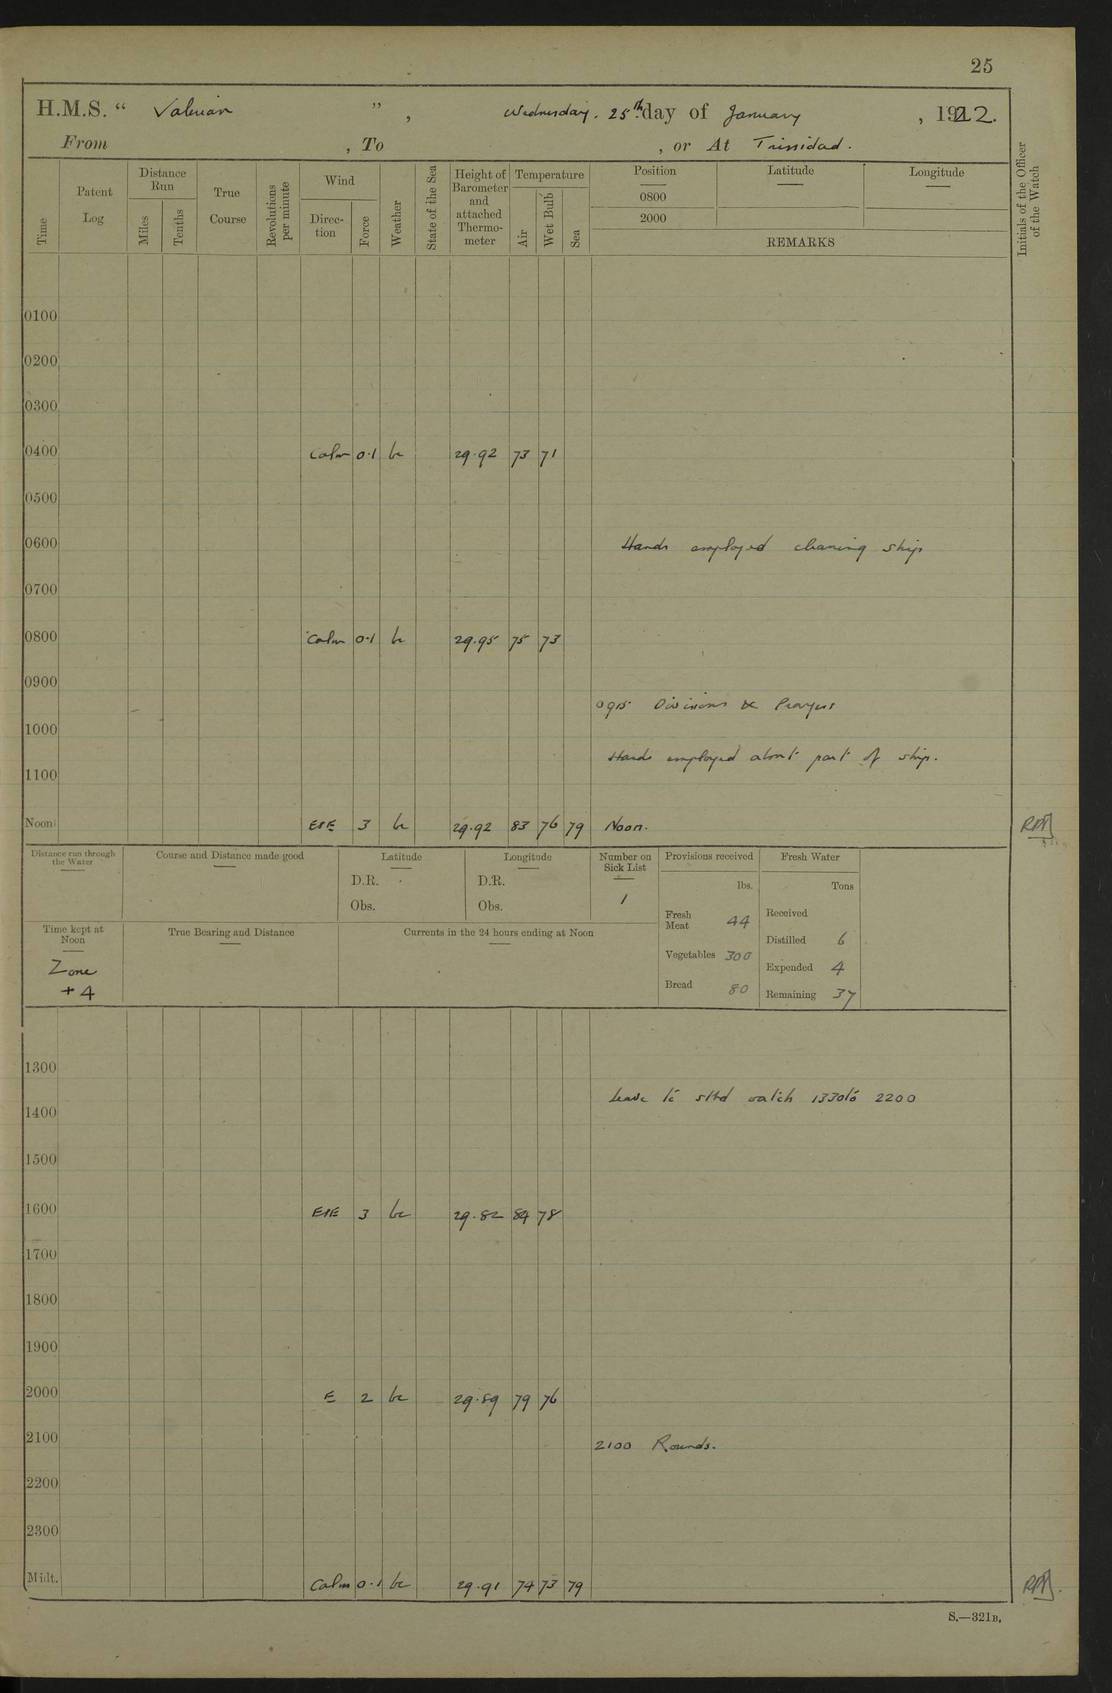 25
H.M.S. “ Valerian ”, Wednesday. 25th day of January, 1922.
From , To , or At Trinidad.
Time Patent Log Distance Run Miles Tenths True Course Revolutions per minute Wind Direction Force Weather State of the Sea Height of Barometer and attached Thermometer Temperature Air Wet Bulb Sea Position Latitude Longitude Initials of the Officer of the Watch
0800
2000
REMARKS
0100
0200
0300
0400 Calm 0.1 bc 29.92 73 71
0500
0600 Hands employed cleaning ship
0700
0800 Calm 0.1 bc 29.95 75 73
0900
0915 Divisions & Prayers
1000
Hands employed about part of ship.
1100
Noon ESE 3 bc 29.92 83 76 79 Noon.
Distance run through the Water Course and Distance made good Latitude Longitude Number on Sick List Provisions received Fresh Water
D.R. D.R. lbs. Tons
Obs. Obs. 1
Fresh Meat 44 Received
Time kept at Noon True Bearing and Distance Currents in the 24 hours ending at Noon
Distilled 6
Vegetables 300 Expended 4
Zone
+ 4 Bread 80 Remaining 37
1300
Leave to stbd watch 1330 to 2200
1400
1500
1600 ESE 3 bc 29.82 84 78
1700
1800
1900
2000 E 2 bc 29.89 79 76
2100 2100 Rounds.
2200
2300
Midt. Calm 0.1 bc 29.91 74 73 79
S.—321B.